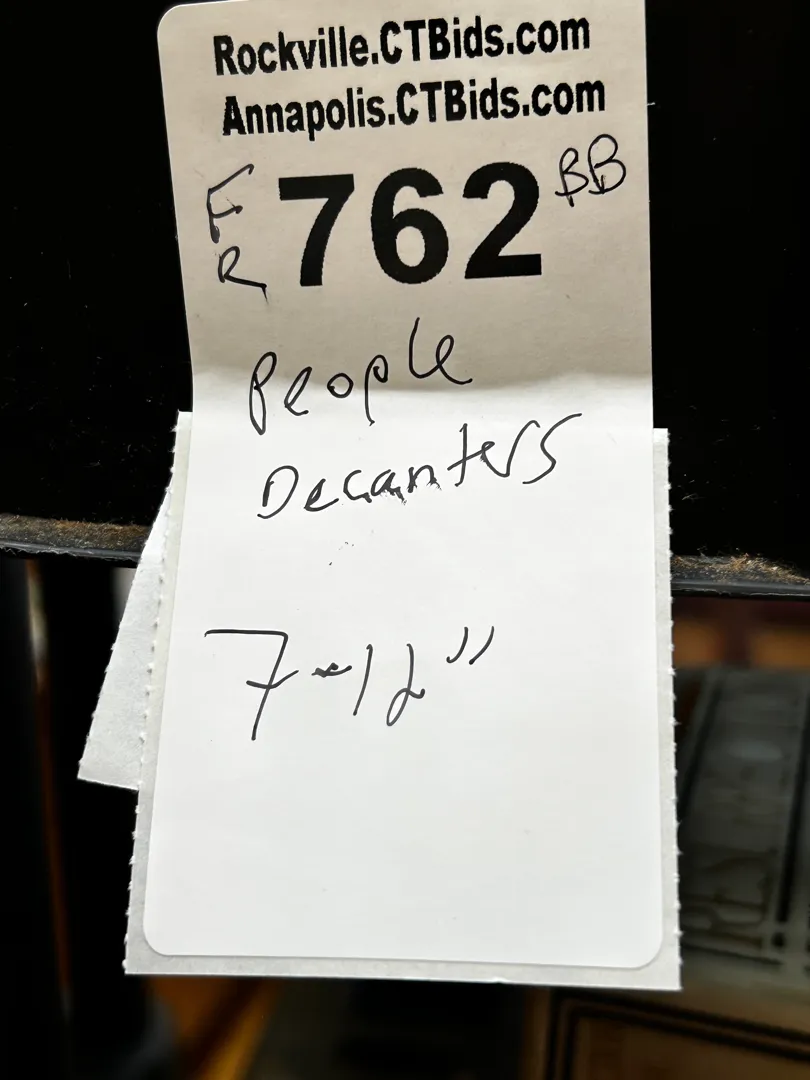 Rockville.CTBids.com
Annapolis.CTBids.com
FR 762 BB
People
Decanters
7-12"